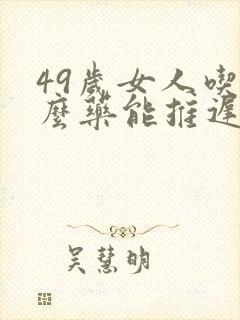 49歲女人喫
麼藥能推遲
吴慧明